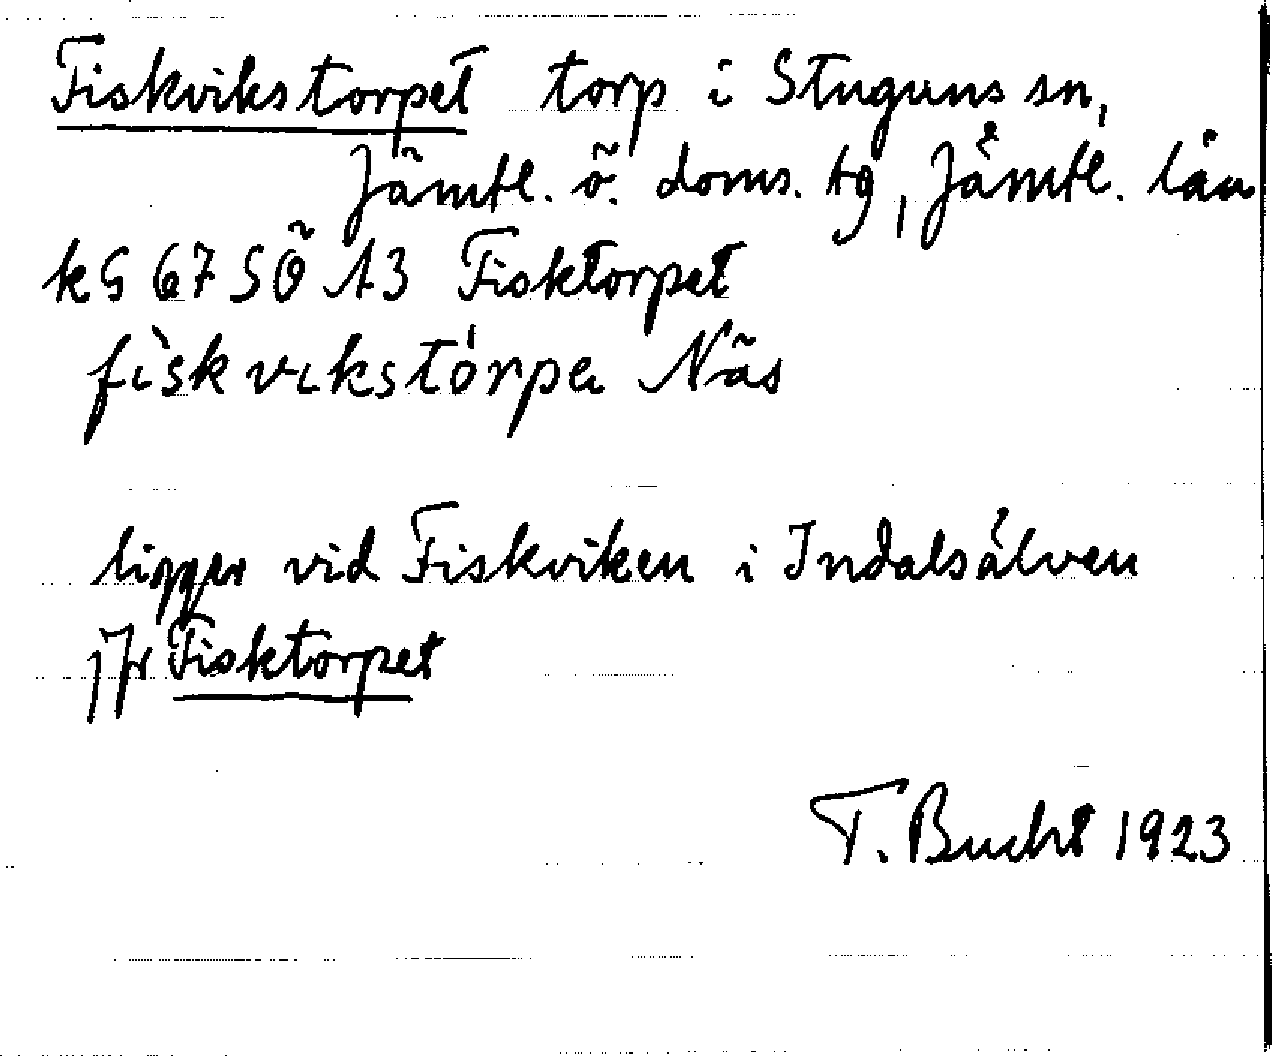 Fiskvikstorpet torp i Stuguns sn,
Jämtl. ö. doms. tg, Jämtl. län
kG 67 SÖ A3 Fisktorpet
fìskvikstórpa Näs
ligger vid Fiskviken i Indalsälven
jfr Fisktorpet
T. Bucht 1923